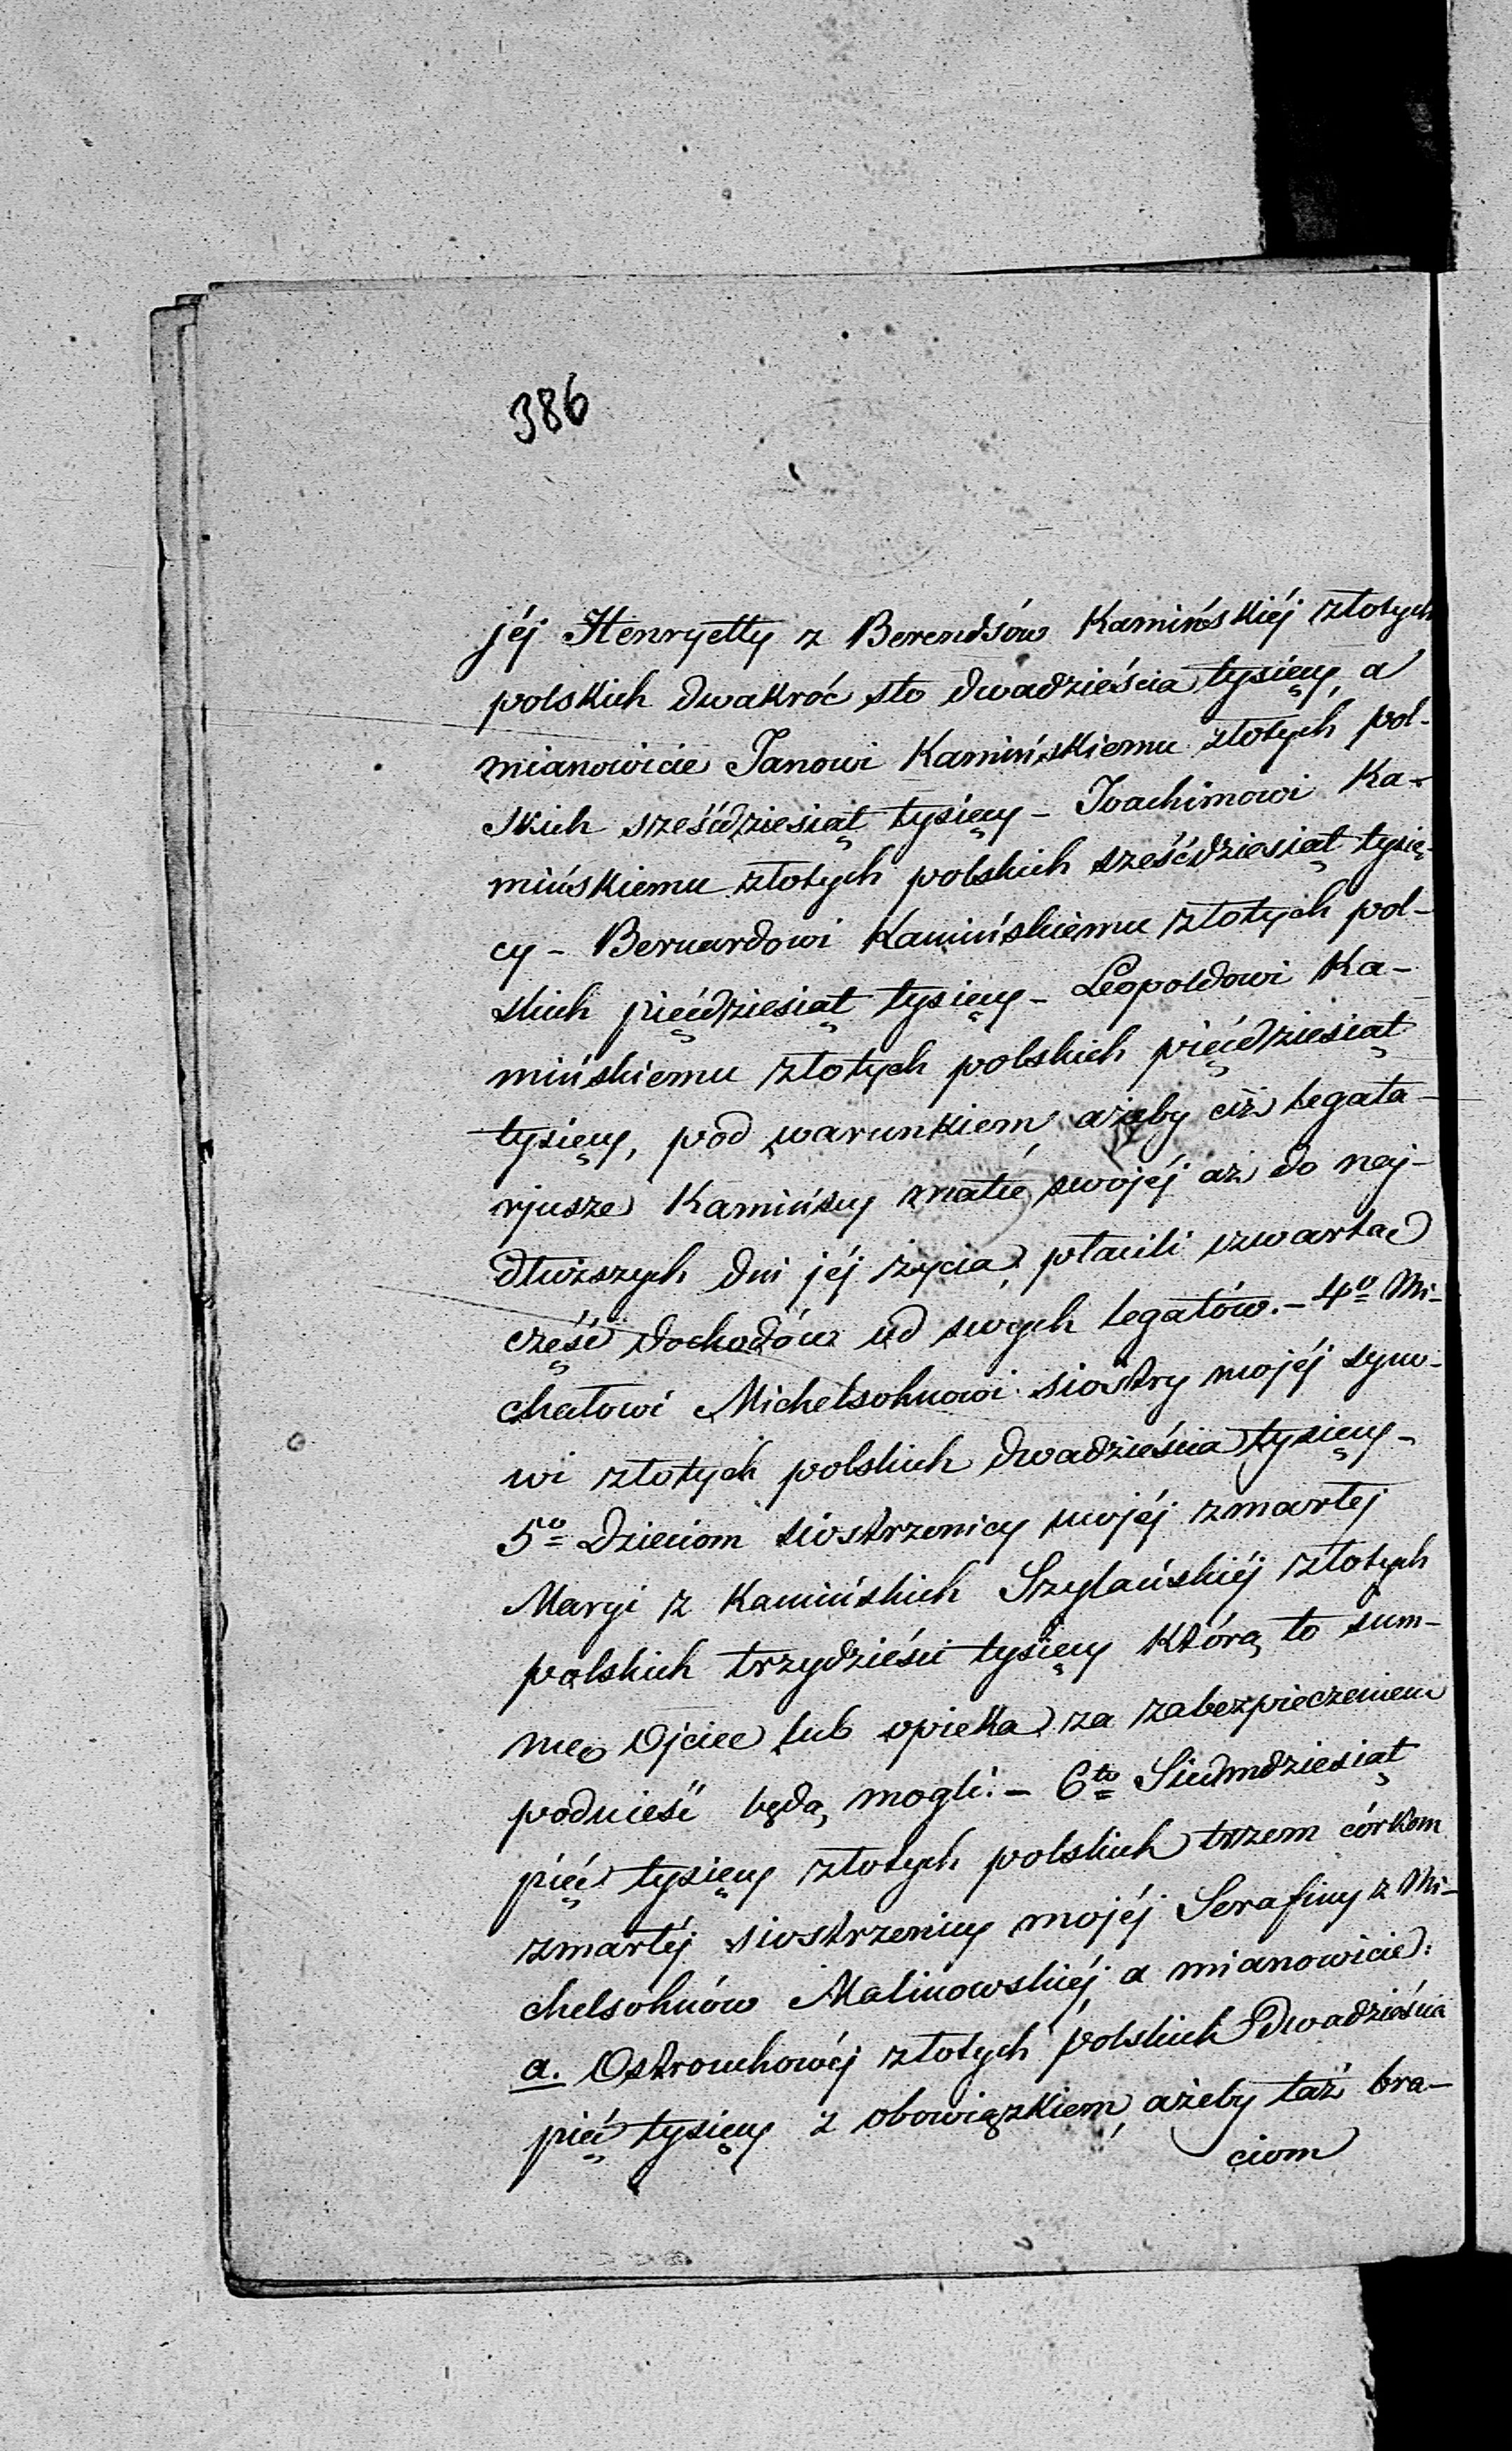 386
jéj Henryetty z Berendsów Kamińskiéj złotych
polskich dwakróć sto dwadzieścia tysięcy, a
mianowicie Janowi Kamińskiemu złotych pol-
skich sześćdziesiąt tysięcy – Joachimowi Ka-
mińskiemu złotych polskich sześćdziesiąt tysię-
cy – Bernardowi Kamińskiemu złotych pol-
skich pięćdziesiąt tysięcy – Leopoldowi Ka-
mińskiemu złotych polskich pięćdziesiąt
tysięcy, pod warunkiem, ażeby ciż legata-
rjusze Kamińscy matce swojéj aż do naj-
dłuższych dni jéj życia, płacili czwartą
część dochodów od swych legatów. – 4o Mi-
chałowi Michelsohnowi siostry mojéj syno-
wi złotych polskich dwadzieścia tysięcy –
5o Dzieciom siostrzenicy mojéj zmarłej
Maryi z Kamińskich Szylańskiéj złotych
polskich trzydzieści tysięcy którą to sum-
mę Ojciec lub opieka za zabezpieczeniem
podnieść będą mogli. – 6to Siedmdziesiąt
pięć tysięcy złotych polskich trzem córkom
zmarłéj siostrzenicy mojéj Serafiny z Mi-
chelsohnów Malinowskiéj, a mianowicie:
a. Ostrouchowéj złotych polskich dwadzieścia
pięć tysięcy z obowiązkiem, ażeby taż bra-
ciom